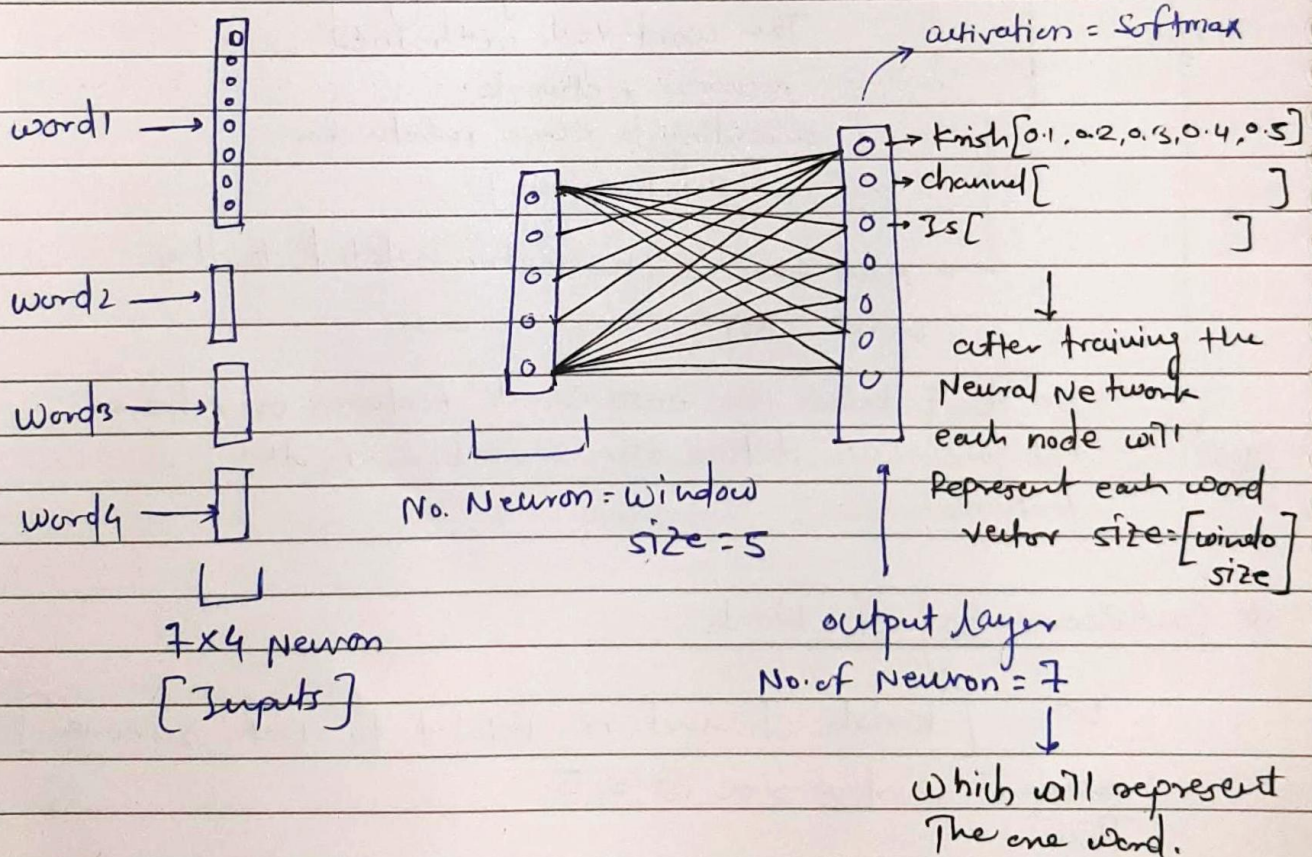 activation = Softmax
word1
word2
Word3
Word4
7x4 Neuron
[Inputs]
No. Neuron = window
size = 5
Krish[0.1, 0.2, 0.3, 0.4, 0.5]
channel[ ]
Is[ ]
after training the
Neural Network
each node will
Represent each word
vector size=[windo
size]
output layer
No. of Neuron = 7
which will represent
The one word.